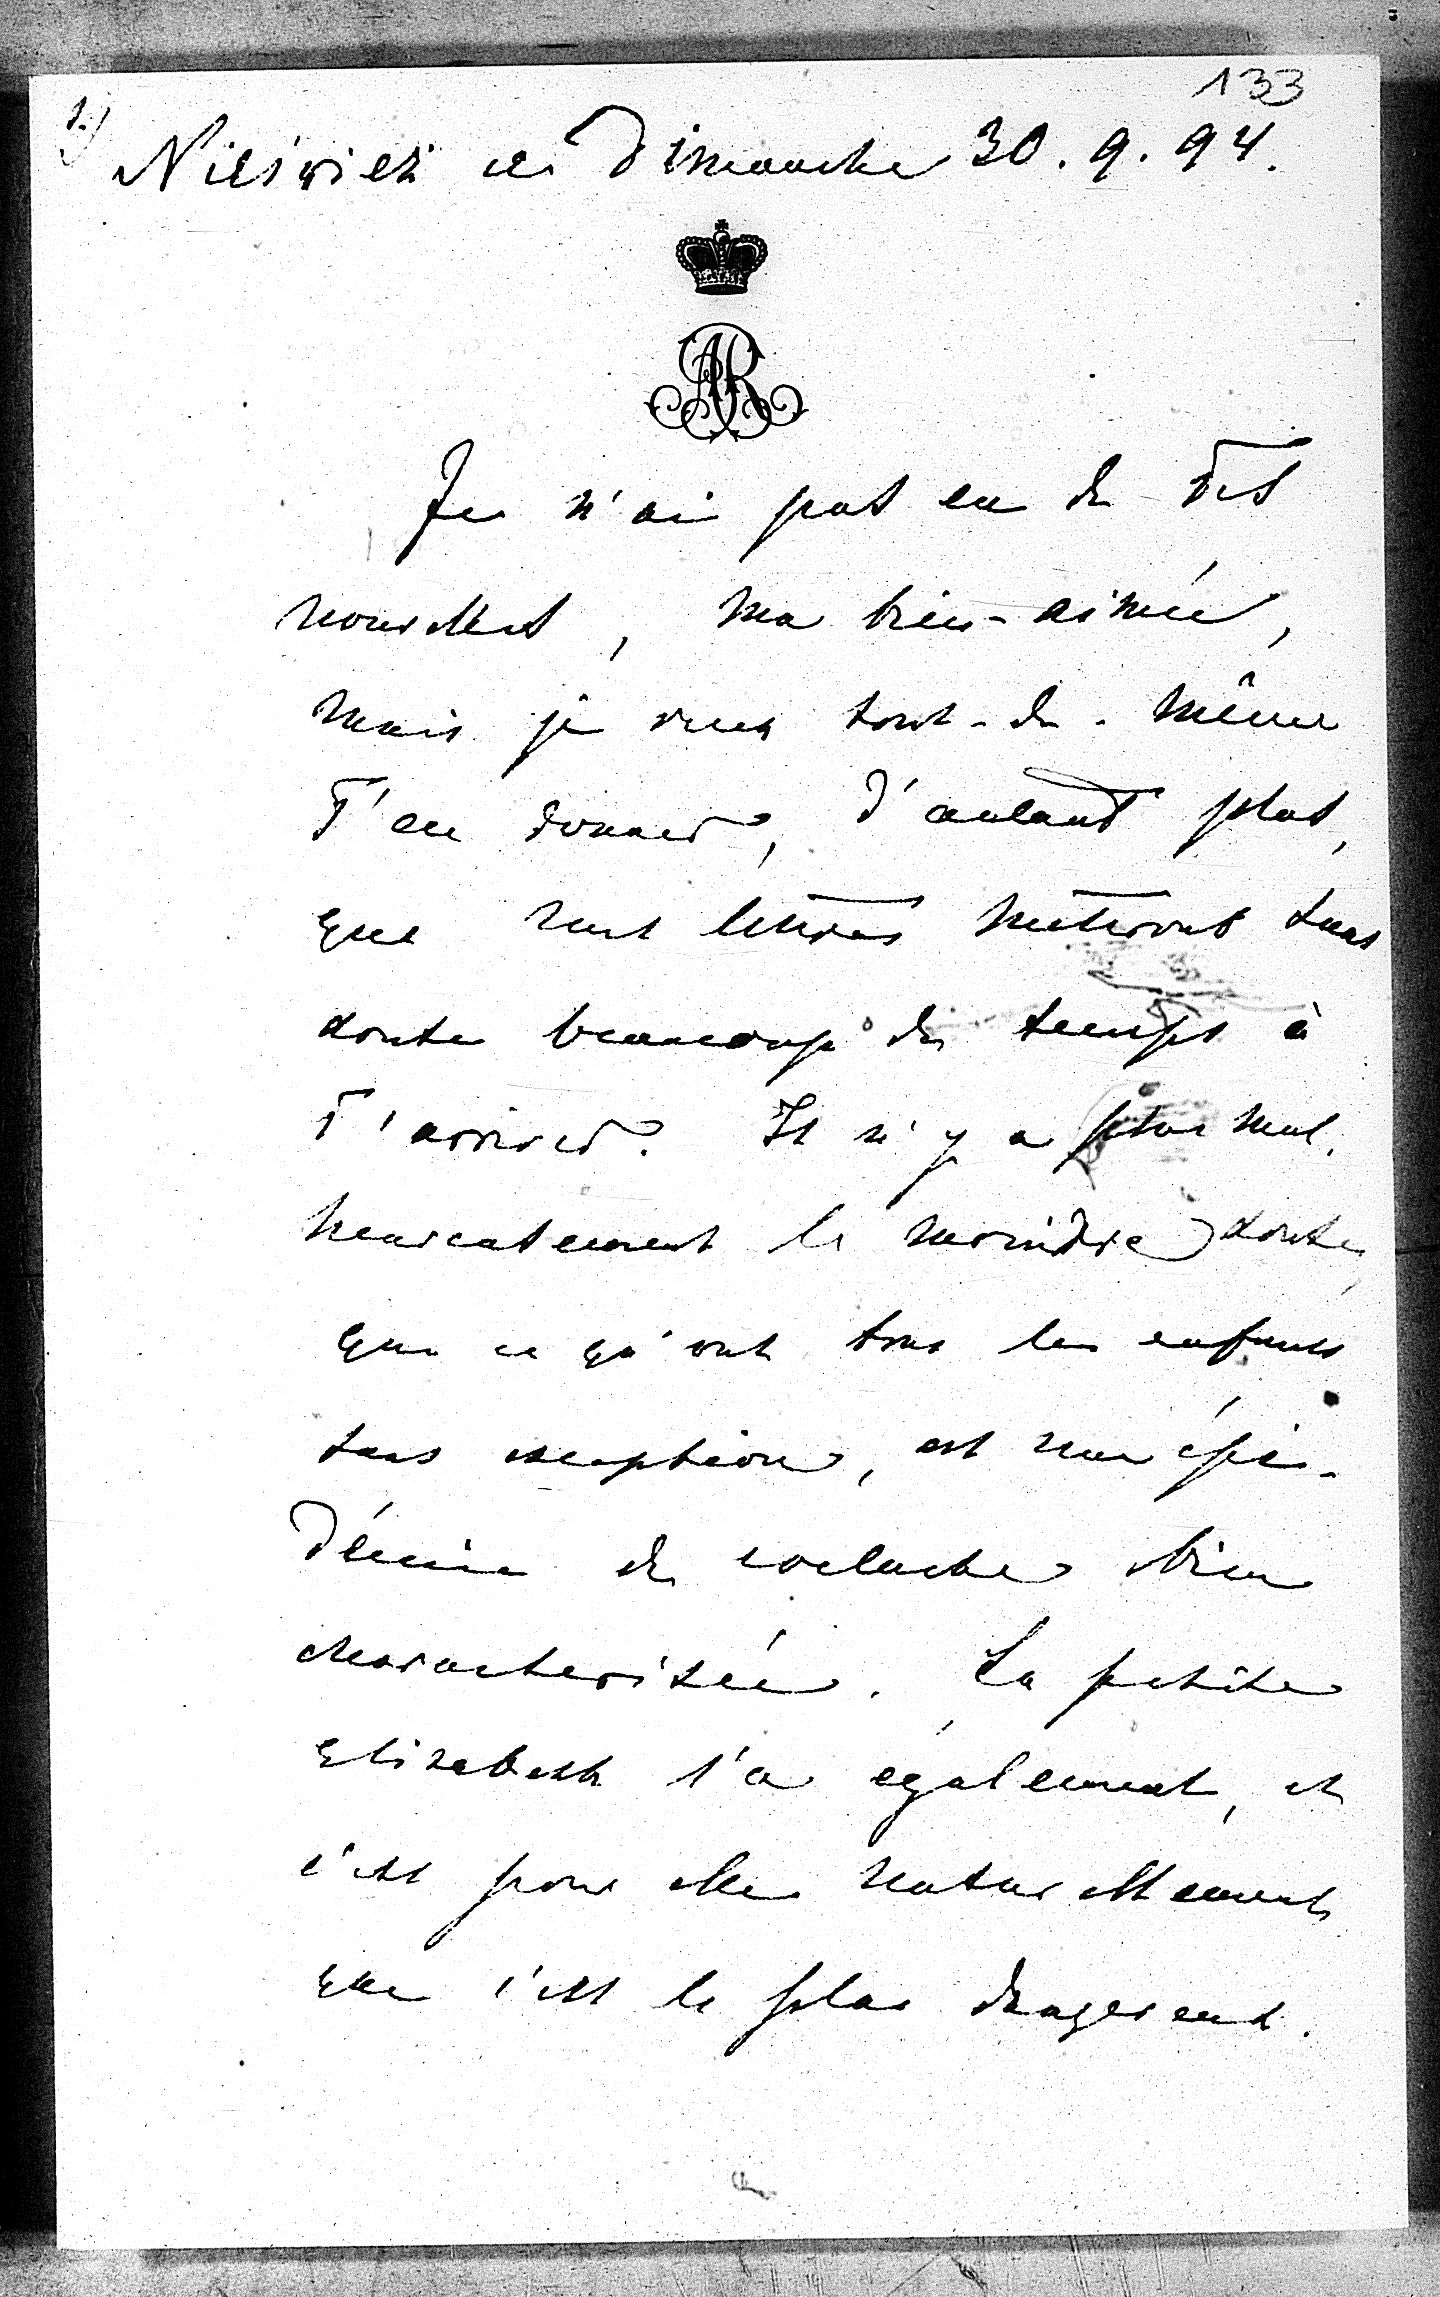 133
1.)
Nieśwież ce Dimanche 30. 9. 94.
AR
Je n'ai pas eu de Tes
nouvelles, ma bien-aimée,
mais je veux tout-de-même
T'en donner, d'autant plus,
que nos lettres mettront sans
doute beaucoup de temps à
T'arriver. Il n'y a plus mal-
heureusement le moindre doute,
que ce qu'ont tous les enfants
sans exception, est une épi-
démie de coqueluche bien
charactérisée. La petite
Elisabeth l'a également, et
c'est pour elle naturellement
que c'est le plus dangereux.